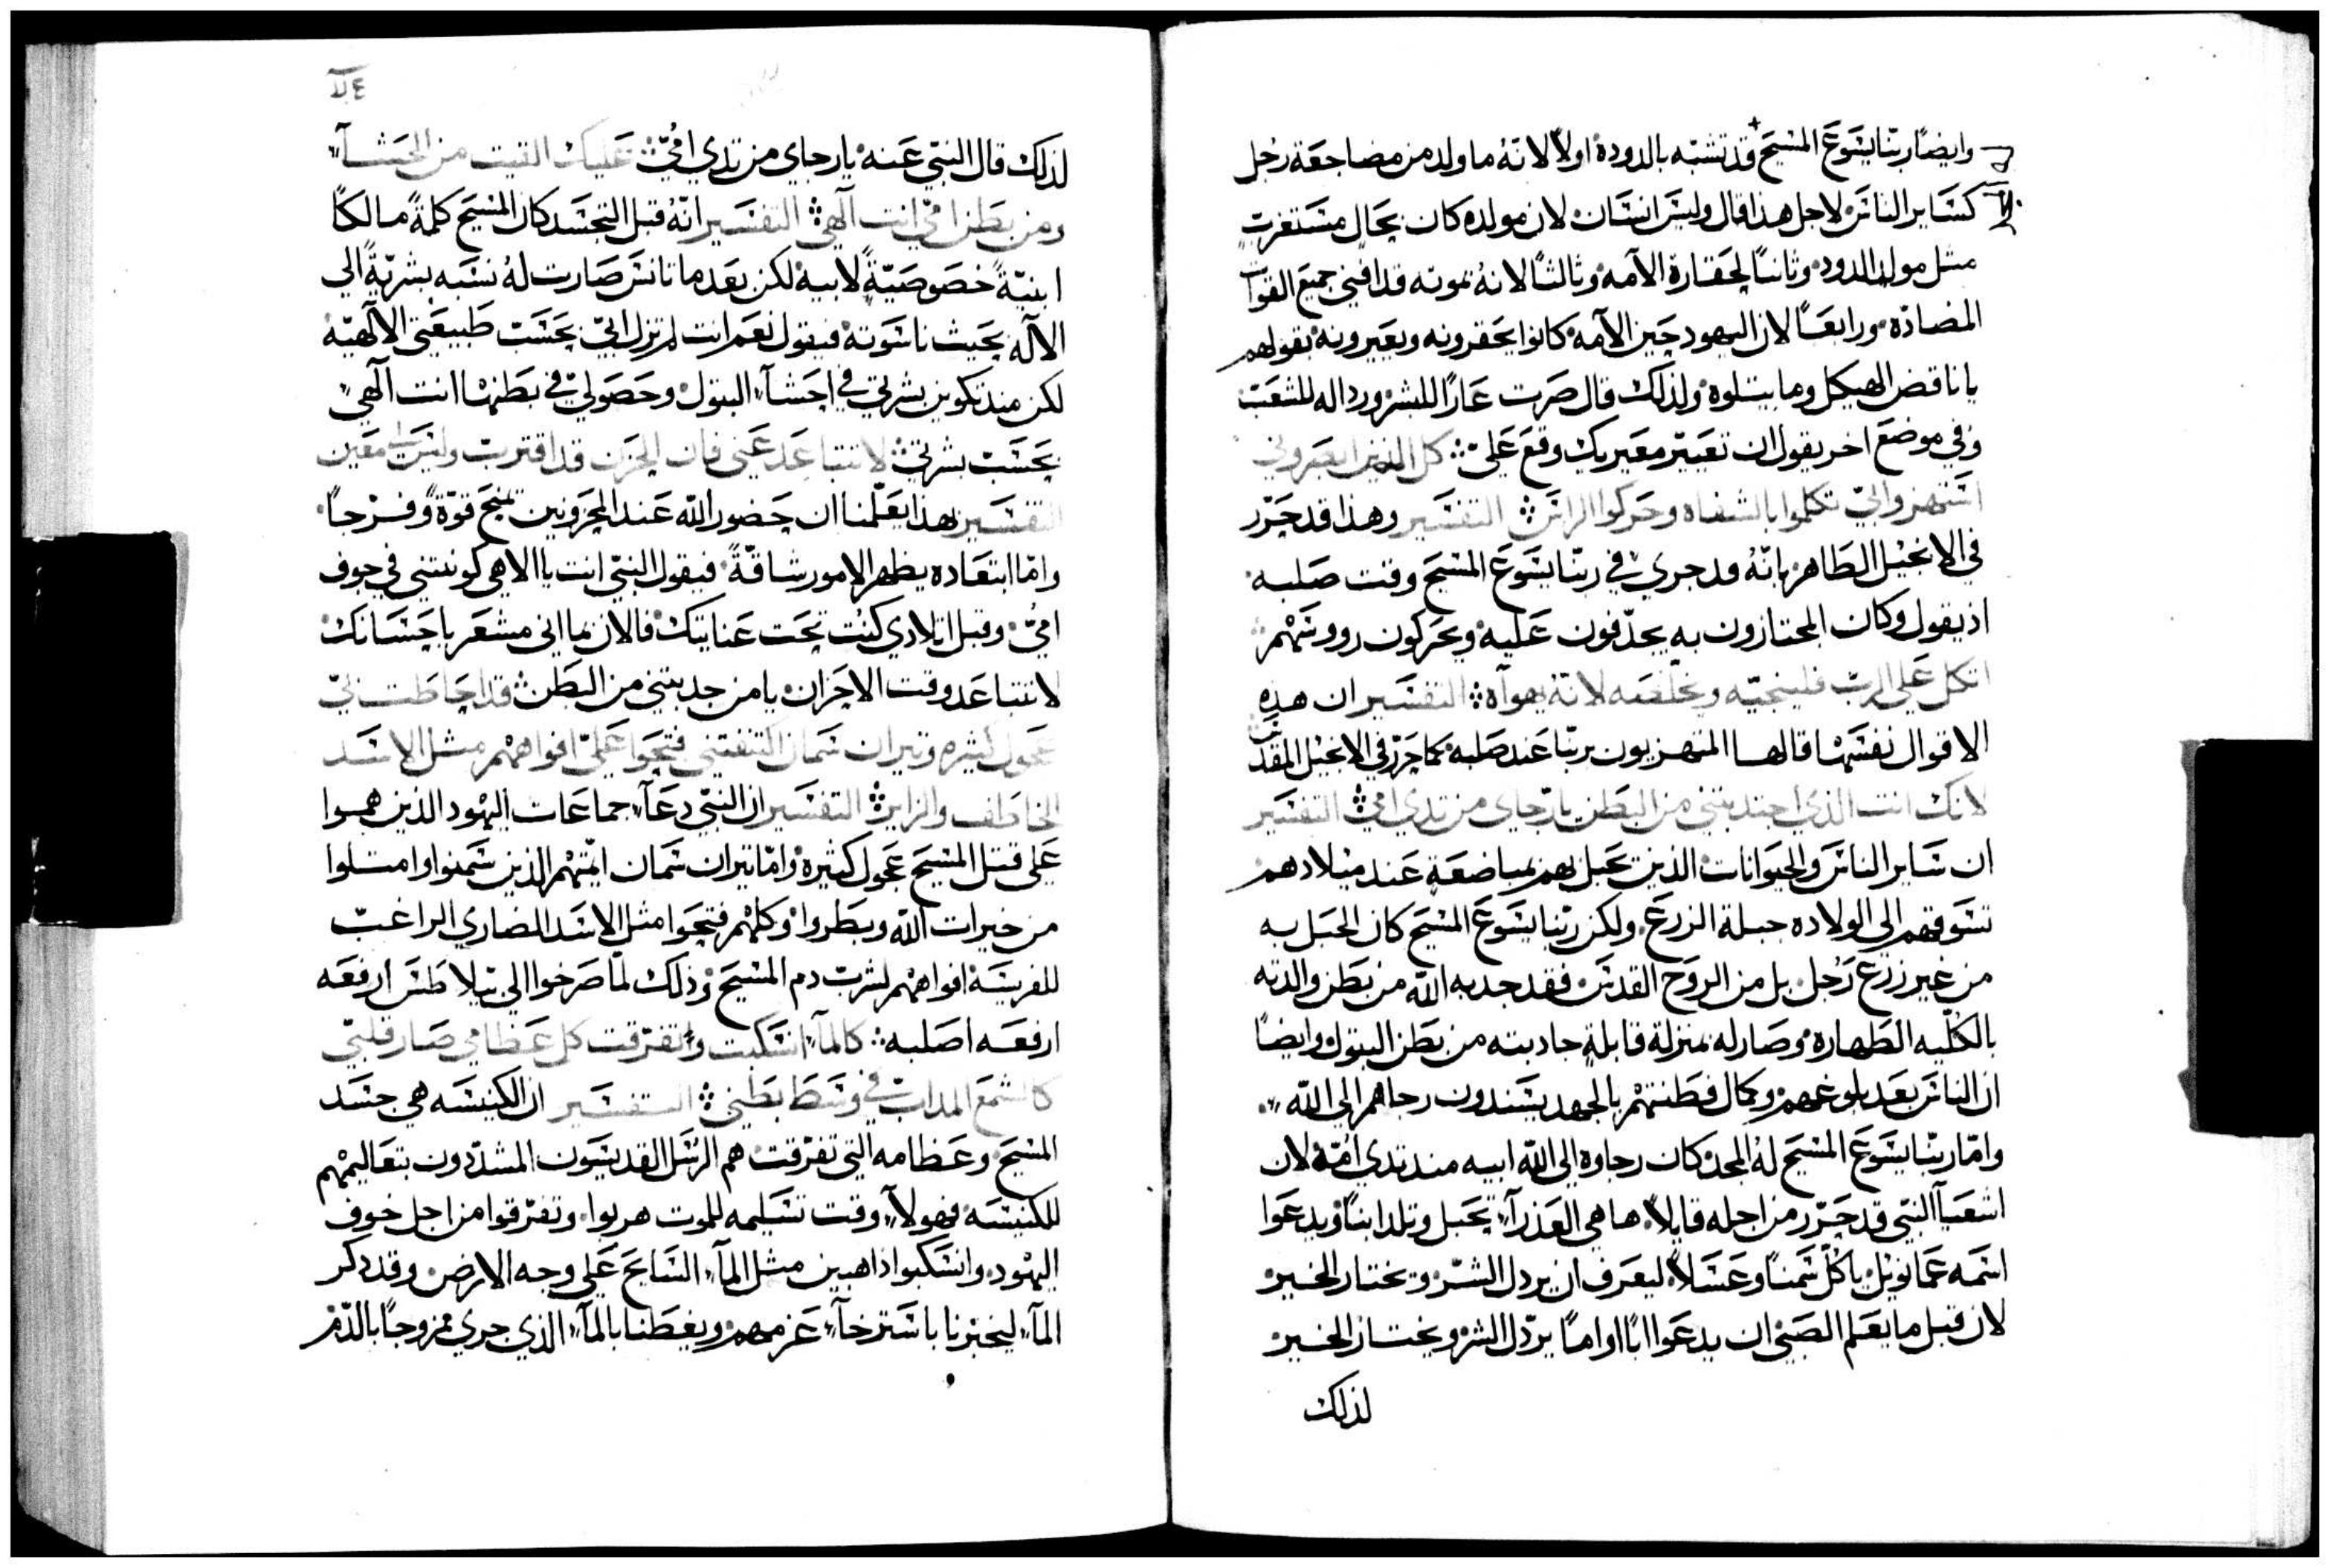 وايضًا ربّنا يسَوعَ المسْيَح قد تشبّه بالدودة اولاً لانّهُ ما ولد من مضاجعَة رجل
كسَاير الناسَ لاجل هذا قال وليسَ انسَان لان مولده كان بحَال مسَتغربٍ
مثل مولد الدود وثانيًا لحَقارة الآمه وثالثًا لانهُ بموته قد افني جميعَ القوات
المضادّه ورابعَــًا لان اليهود حَين الآمه كانوا يحَقرونه ويعَيرونه بقولهم
يا ناقض الهيكل وما يتلوه ولذلك قال صَرت عَارًا للبشر ورداله للشعَبَ
وفي موضعَ اخر يقول ان تعَيير معَيريك وقعَ عَليّ كل الذين ابصَروني
اسَتهزوا بيّ تكلموا بالشفاه وحَركوا الراسَ التفسَير وهذا قد حَرّر
في الانجيل الطَاهر بانّهُ قد جري في ربّنا يسَوعَ المسْيَح وقت صَلبه
اذ يقول وكان المجتازون به يجدّفون عَليه ويحَركون رووسَهْم
اتكل عَلي الربّ فلينجيّه ويخلّصَه لانهُ يهوآه التفسَير ان هذه
الاقوال نفسَهْا قالهــا المتهزيون بربّنا عَند صَلبه كما حَرّر في الانجيل المقدسَ
لانك انت الذي اجتدبتني من البطَن يا رّجاي من تدي اميّ التفسَير
ان سَاير الناسَ والحيَوانات الذين يحَبل بهم بمباضعَةٍ عَند ميْلادهم
تسَوقهم الي الولاده جبلة الزرعَ ولكن ربّنا يسَوعَ المسْيَح كان الحَبَل به
من غير زرعَ رَجل بل من الروَح القدسَ فقد جدبه اللّٰه من بطَن والدته
بالكلّيه الطَهاره وصَار له بمنزلة قابلةٍ جادبته من بطَن البتول وايضًا
ان الناسَ بعَد بلوغهم وكمال فطَنتهْم بالجهد يسَندون رجاهم الي اللّٰه
وامّا ربّنا يسَوعَ المسْيَح لهُ المجد كان رجاوه الي اللّٰه ابيه مند تدي امّه لان
اشعَيآ النبّي قد حَرّر من اجله قايلاً ها هي العَذرآء تحَبل وتلد ابنًا ويدعَوا
اسَمه عَمانويْل ياكلْ سَمنًا وعَسَلاً ليعَرف ان يردل الشرّ ويختار الخير
لان قبل ما يعَلم الصَبي ان يدعَوا ابًا او امًا يردّل الشر ويختار الخير
لذلك
لذلك قال النبّي عَنه يا رجاي من تدي اميّ عَليك القيت من الحَشـآء
ومن بطَن اميّ انت آلهي التفسَير انّهُ قبل التجسَد كان المسْيَح كلمةً مالكًا
ابنيّةً خصَوصَيّةً لابيه لكن بعَد ما تانسَ صَارت لهُ نسَبه بشريّةً الي
الآله بحَيث ناسَوته فيقول نعَم انت لم تزل ابيّ بحَسَبَ طَبيعَتي الآلهيّه
لكن مند تكوين بشرتي في احَشآء البتول وحَصَولي في بطَنها انت آلهي
بحَسَبَ بشرتي لا تتباعَد عَني فان الحَزن قد اقتربّ وليسَ لي معَين
التفسَير بهذا يعَلّمنا ان حَضور اللّٰه عَند المحَزونين يمنَح قوّةً وفرْحًا
وامّا ابتعَاده يظهر الامور شاقّةً فيقول النبّي انت يا الاهي كونتني في جوف
اميّ وقبل ايلادي كنت تحَت عَنايتك فالان بما اني مشعَر باحَسَانك
لا تتباعَد وقت الاحَزان يا من جدبتني من البطَن قد احَاطَت بيّ
عَجول كثيره وتيران سَمان اكتنفتني فتحَوا عَليّ افواههْم مثل الاسَد
الخاطَف والزاير التفسَير ان النبّي دعَآ جماعَات اليهْود الذين همــوا
عَلي قتل المسْيَح عَجول كثيره وامّا تيران سَمان ايمّتهْم الذين سَمنوا وامتلوا
من خيرات اللّٰه وبطَروا وكلهْم فتحَوا مثل الاسَد الضاري الراغبّ
للفريسَه افواههْم لشربّ دم المسْيَح وذلك لمّا صَرخوا الي بيلاطَسَ ارفعَه
ارفعَه اصَلبه كالمآء انسَكبت وتفرّقت كل عَظامي صَار قلبّي
كالشمعَ المدابّ في وسَطَ بطَني التفسَير ان الكنيسَه هي جسَد
المسْيَح وعَظامه التي تفرّقت هم الرسَل القديسَون المشدّدون بتعَاليمهْم
للكنيسَه فهولآء وقت تسَليمه للموت هربوا وتفرّقوا من اجل خوف
اليهْود وانسَكبوا داهبين مثل المآء السَايَح عَلي وجه الارض وقد دكر
المآء ليخبرنا باسَترخآء عَزمهم ويعَظَنا بالمآء الذي جري ممزوجًا بالدّم